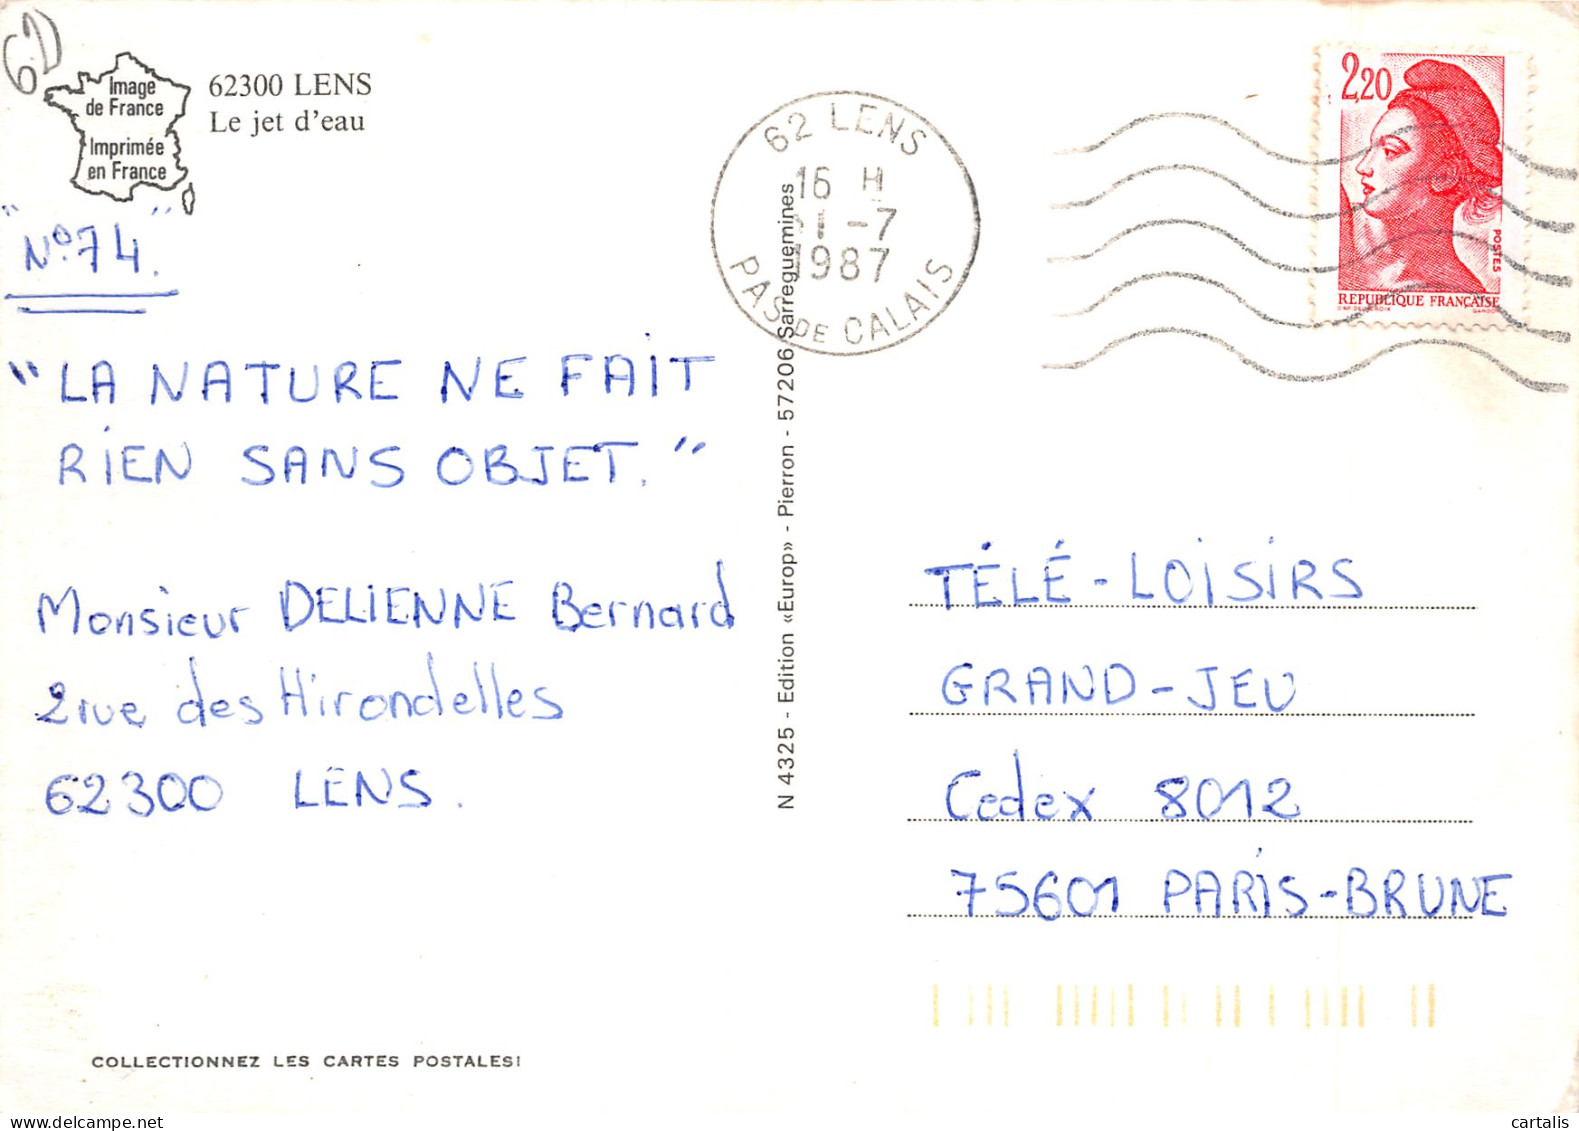 62
Image
de France
Imprimée
en France
62300 LENS
Le jet d'eau
"N° 74."
"LA NATURE NE FAIT
RIEN SANS OBJET."
Monsieur DELIENNE Bernard
2 rue des Hirondelles
62300 LENS.
COLLECTIONNEZ LES CARTES POSTALES!
N 4325 - Edition «Europ» - Pierron - 57206 Sarreguemines
62 LENS
16 H
-7
1987
PAS DE CALAIS
2,20
POSTES
REPUBLIQUE FRANÇAISE
TÉLÉ-LOISIRS
GRAND-JEU
Cedex 8012
75601 PARIS-BRUNE
cartalis